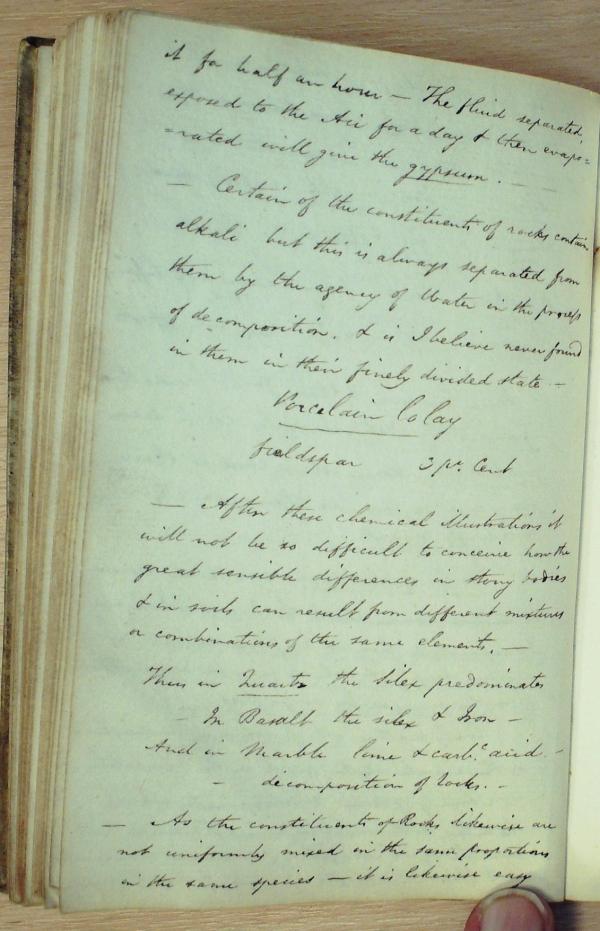 it for half an hour — The fluid separated,
exposed to the Air for a day & then evapo=
=rated will give the gypsum. —
— Certain of the constituents of rocks contain
alkali but this is always separated from
them by the agency of Water in the process
of decomposition. & is I believe never found
in them in their finely divided state —
Porcelain Calay
fieldspar 3 pr. Cent
— After these chemical illustrations it
will not be so difficult to conceive how the
great sensible differences in stony bodies
& in soils can result from different mixtures
or combinations of the same elements. —
Thus in Quartz the Silex predominates
— In Basalt the silex & Iron —
And in Marble lime & carb.c acid. —
— decomposition of Rocks. —
— As the constituents of Rocks likewise are
not uniformly mixed in the same proportions
in the same species — it is likewise easy